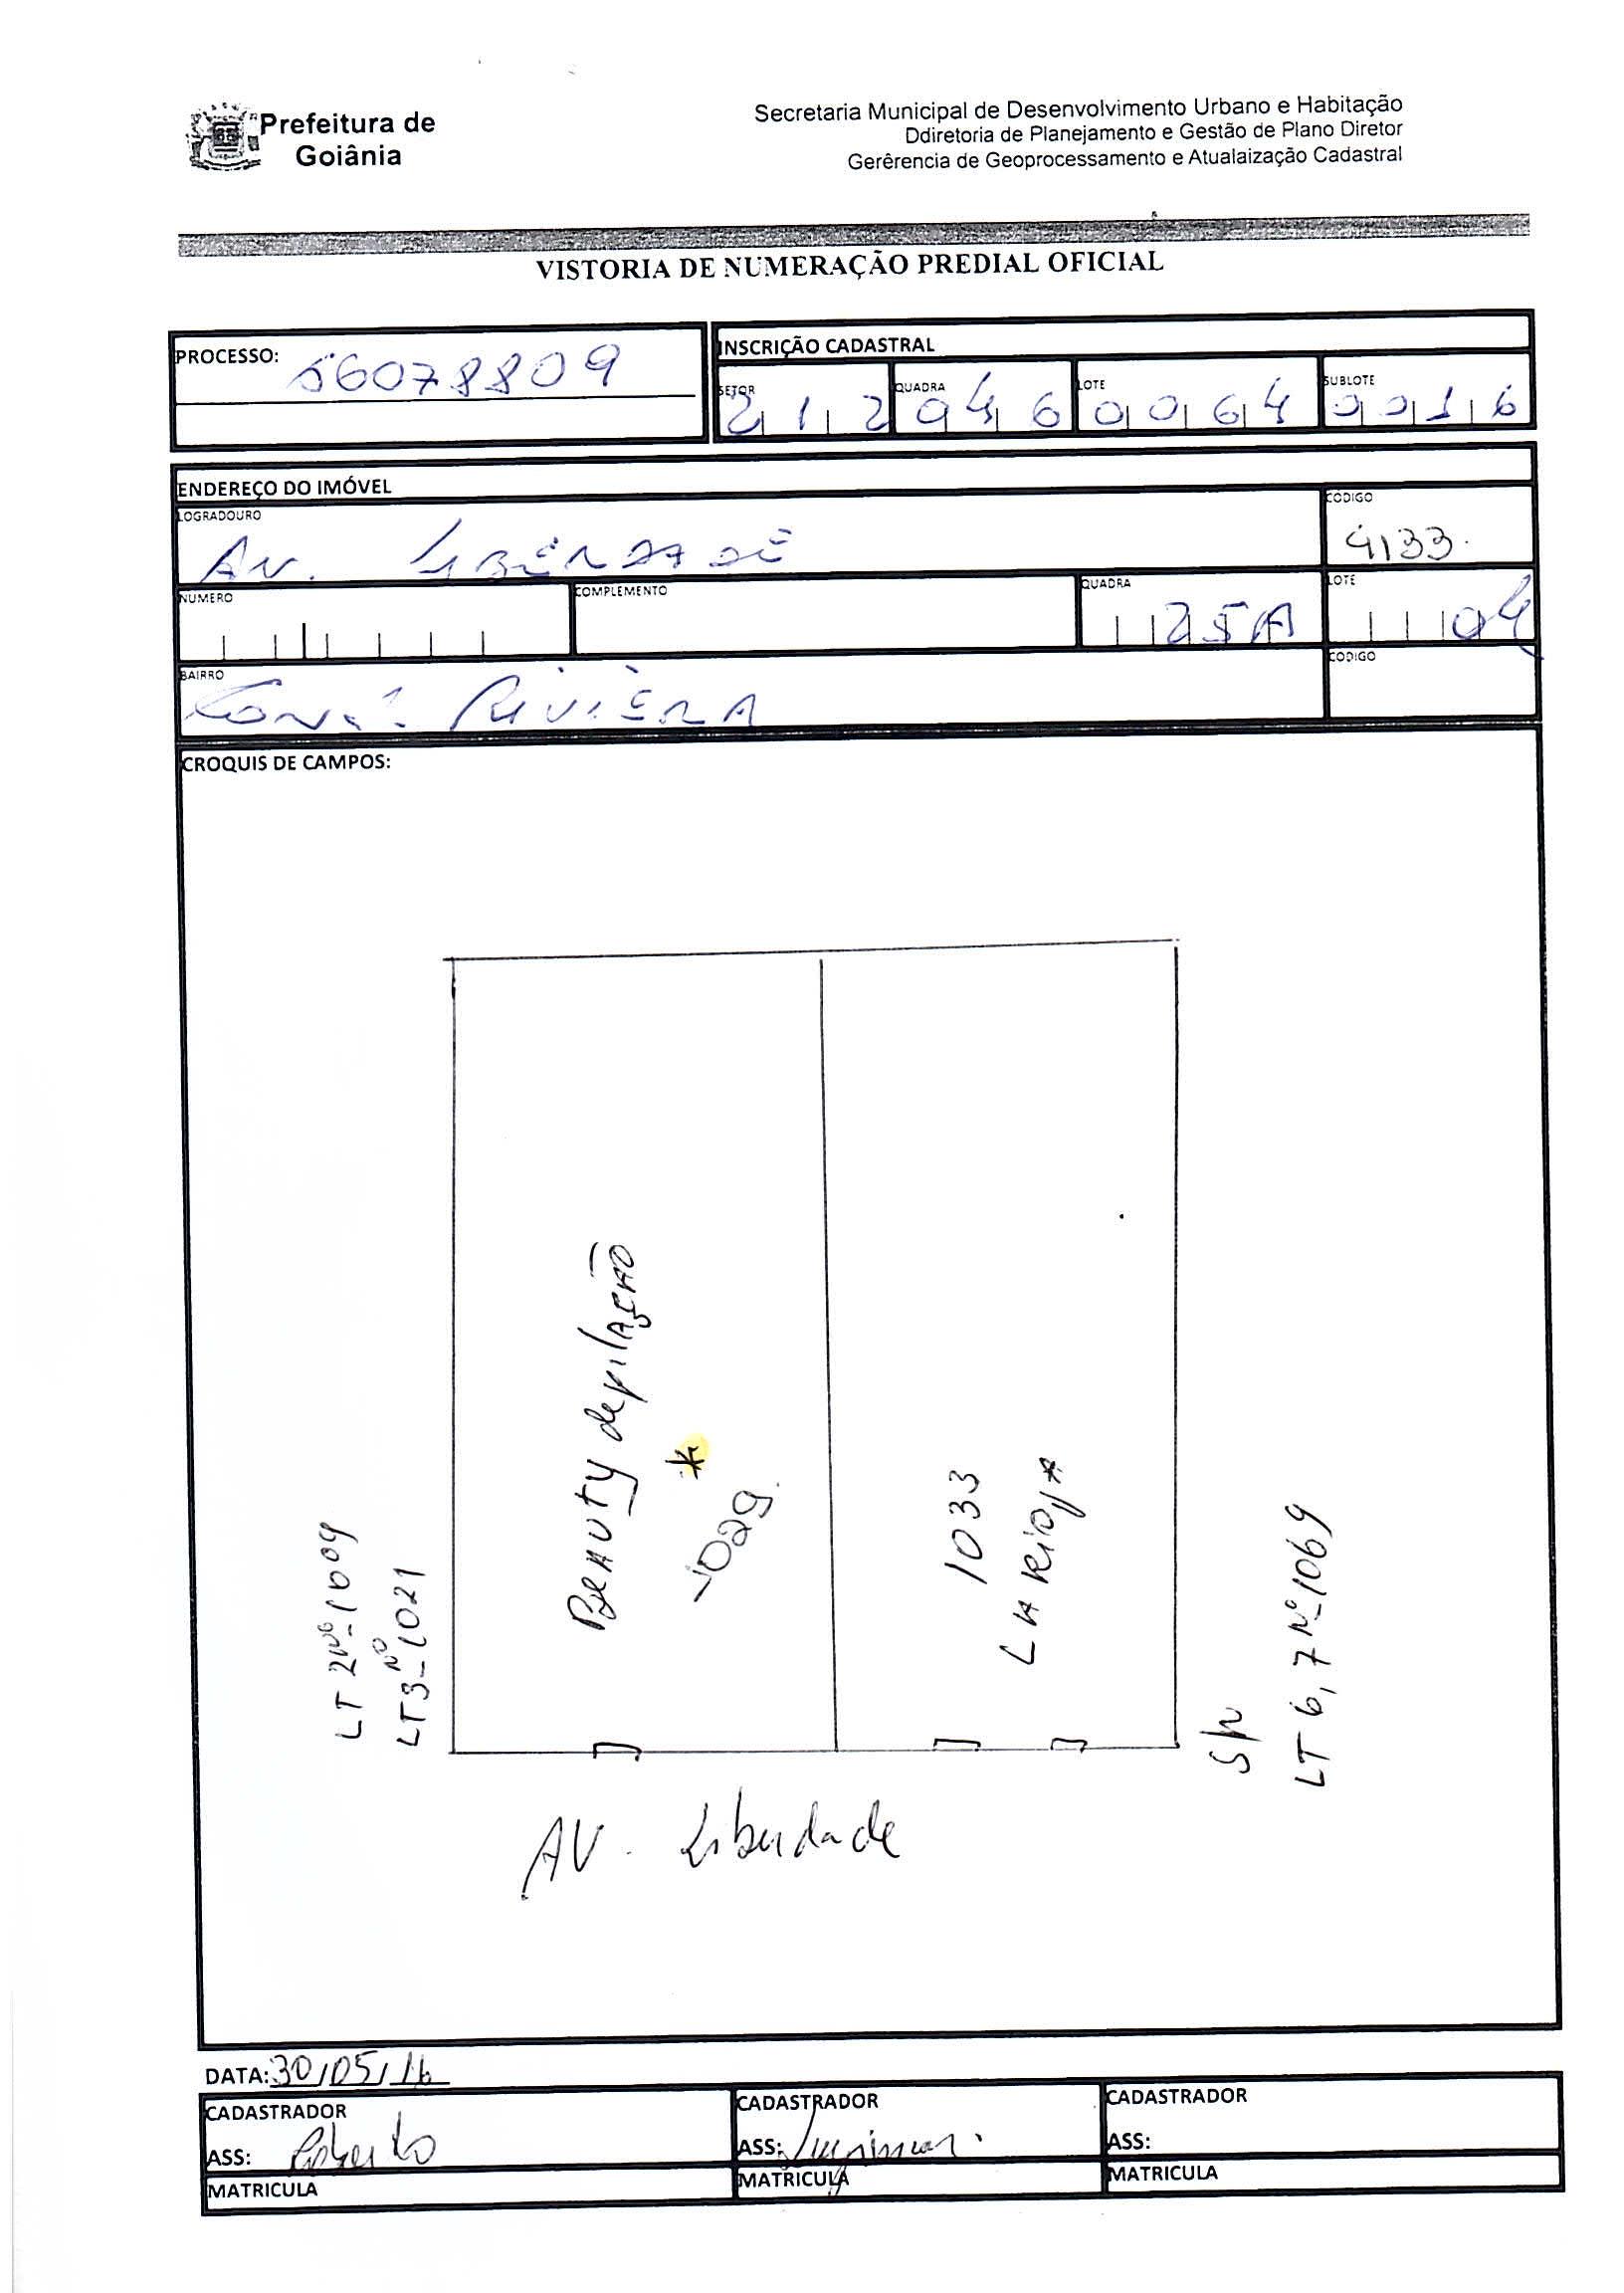 Prefeitura de
Goiânia
Secretaria Municipal de Desenvolvimento Urbano e Habitação
Ddiretoria de Planejamento e Gestão de Plano Diretor
Gerêrencia de Geoprocessamento e Atualaização Cadastral
VISTORIA DE NUMERAÇÃO PREDIAL OFICIAL
PROCESSO: 56078809
INSCRIÇÃO CADASTRAL
SETOR QUADRA LOTE SUBLOTE
212 046 0064 0016
ENDEREÇO DO IMÓVEL
LOGRADOURO CODIGO
AV. LIBERDADE 4133
NUMERO COMPLEMENTO QUADRA LOTE
25A 04
BAIRRO CODIGO
CONJ. RIVIERA
CROQUIS DE CAMPOS:
LT 2 Nº 1009
LT 3 Nº 1021
BEAUTY depilação
*
1029
1033
LA RIOJA
S/N
LT 6, 7 Nº 1069
AV. Liberdade
DATA: 30/05/16
CADASTRADOR CADASTRADOR CADASTRADOR
ASS: Roberto ASS: ASS:
MATRICULA MATRICULA MATRICULA